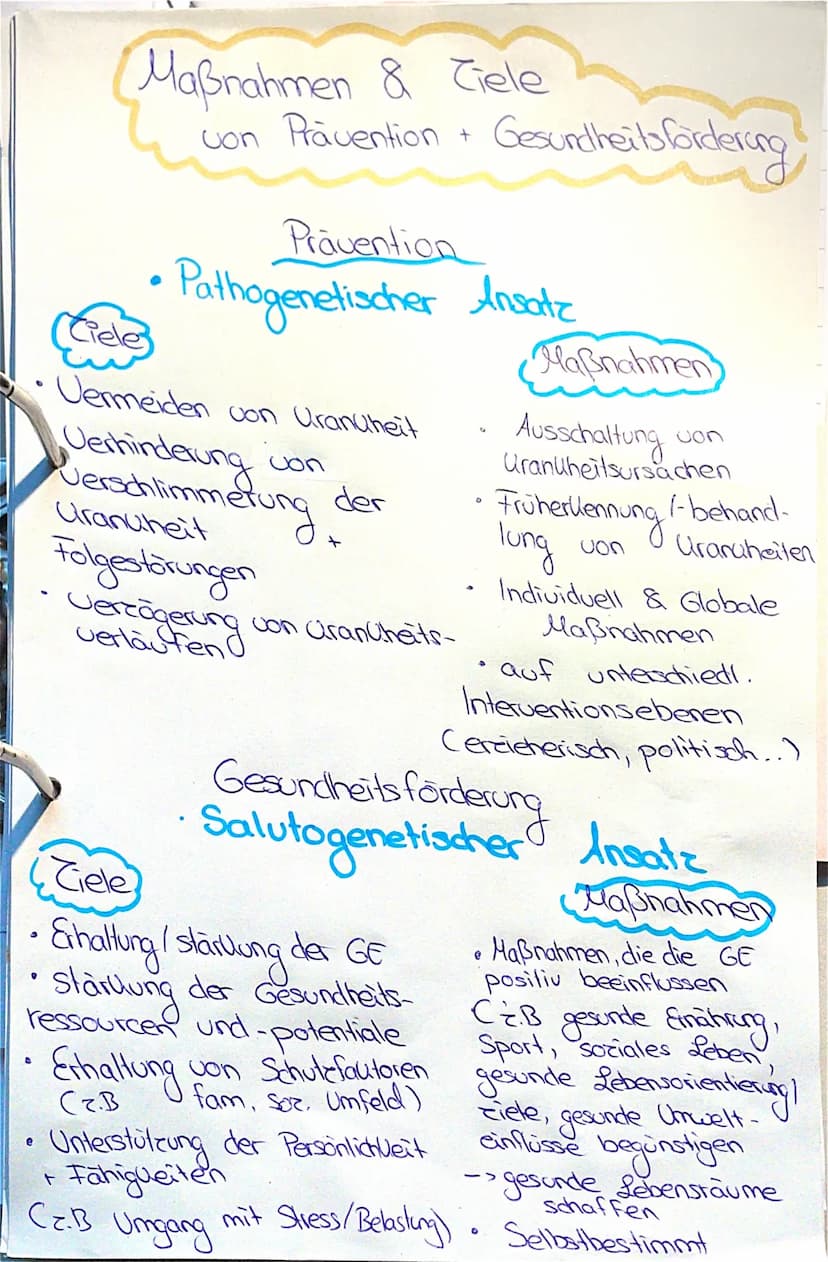 Maßnahmen & Ziele
von Prävention + Gesundheitsförderung
Prävention
• Pathogenetischer Ansatz
Ziele
• Vermeiden von Krankheit
Verhinderung von
Verschlimmerung der
Krankheit +
Folgestörungen
• Verzögerung von Krankheits-
verläufen
Maßnahmen
• Ausschaltung von
Krankheitsursachen
• Früherkennung/-behand-
lung von Krankheiten
• Individuell & Globale
Maßnahmen
• auf unterschiedl.
Interventionsebenen
(erzieherisch, politisch..)
Gesundheitsförderung
• Salutogenetischer Ansatz
Ziele
• Erhaltung/stärkung der GE
• Stärkung der Gesundheits-
ressourcen und -potentiale
• Erhaltung von Schutzfaktoren
(z.B fam. soz. Umfeld)
• Unterstützung der Persönlichkeit
+ Fähigkeiten
(z.B Umgang mit Stress/Belastung)
Maßnahmen
• Maßnahmen, die die GE
positiv beeinflussen
(z.B gesunde Ernährung,
Sport, soziales Leben,
gesunde Lebensorientierung/
ziele, gesunde Umwelt-
einflüsse begünstigen
-> gesunde Lebensräume
schaffen
• Selbstbestimmt